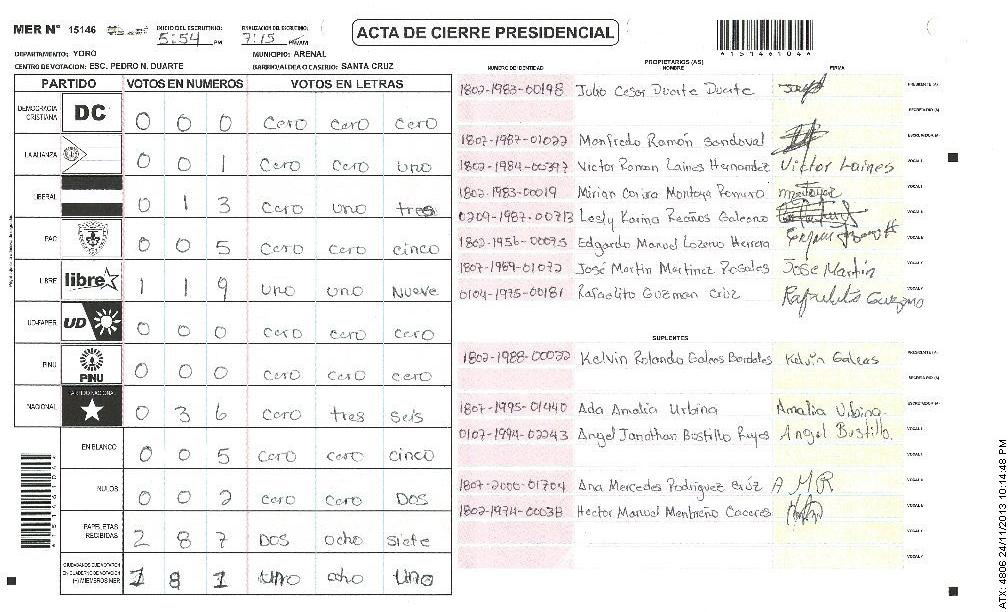 MER Nº 15146 INICIO DEL ESCRUTINIO: 5:54 PM FINALIZACION DEL ESCRUTINIO: 7:15 PM/AM
ACTA DE CIERRE PRESIDENCIAL
DEPARTAMENTO: YORO MUNICIPIO: ARENAL
CENTRO DE VOTACION: ESC. PEDRO N. DUARTE BARRIO/ALDEA O CASERIO: SANTA CRUZ
PARTIDO VOTOS EN NUMEROS VOTOS EN LETRAS
DEMOCRACIA CRISTIANA DC 0 0 0 cero cero cero
LA ALIANZA 0 0 1 cero cero uno
LIBERAL 0 1 3 cero uno tres
PAC 0 0 5 cero cero cinco
LIBRE libre 1 1 9 uno uno Nueve
UD-FAPER UD 0 0 0 cero cero cero
PINU PINU 0 0 0 cero cero cero
NACIONAL PARTIDO NACIONAL 0 3 6 cero tres seis
EN BLANCO 0 0 5 cero cero cinco
NULOS 0 0 2 cero cero DOS
PAPELETAS RECIBIDAS 2 8 7 DOS ocho siete
CIUDADANOS QUE VOTARON EN CUADERNO DE VOTACION (+) MIEMBROS MER 1 8 1 uno ocho uno
PROPIETARIOS (AS)
NUMERO DE IDENTIDAD NOMBRE FIRMA
1802-1983-00198 Julio Cesar Duarte Duarte PRESIDENTE (A)
SECRETARIO (A)
1807-1987-01022 Manfredo Ramón Sandoval ESCRUTADOR (A)
1802-1984-00397 Victor Roman Laines Hernandez Victor Laines VOCAL I
1807-1983-00019 Mirian Montoya Romero
0209-1987-00713 Lesly Karina Galeano
1802-1956-00095 Edgardo Manuel Lozano Herrera
1807-1969-01072 José Martin Martinez Rosales José Martin
0104-1975-00181 Rafaelito Guzman Cruz Rafaelito Guzmno
SUPLENTES
1802-1988-00022 Kelvin Rolando Galeas Bardales Kelvin Galeas PRESIDENTE (A)
SECRETARIO (A)
1807-1995-01440 Ada Amalia Urbina Amalia Urbina ESCRUTADOR (A)
0107-1994-02243 Angel Jonathan Bustillo Reyes Angel Bustillo. VOCAL I
1807-2000-01704 Ana Mercedes Rodriguez Crúz A M R
1802-1974-00038 Hector Manuel Membreño Caceres
ATX: 4806 24/11/2013 10:14:48 PM